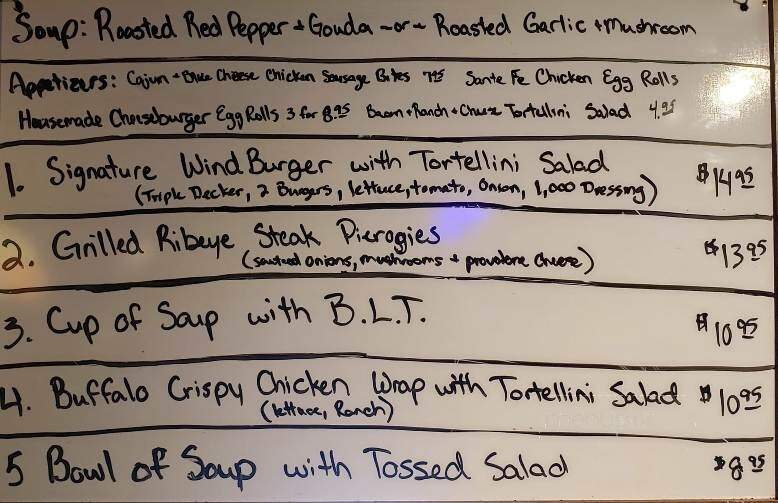 Soup: Roasted Red Pepper + Gouda ~or~ Roasted Garlic + Mushroom
Appetizers: Cajun + Blue Cheese Chicken Sausage Bites 7.95 Sante Fe Chicken Egg Rolls
Housemade Cheeseburger Egg Rolls 3 for 8.95 Bacon + Ranch + Cheese Tortellini Salad 4.95
1. Signature Wind Burger with Tortellini Salad $14.95
(Triple Decker, 2 Burgers, lettuce, tomato, Onion, 1,000 Dressing)
2. Grilled Ribeye Steak Pierogies $13.95
(sauteed onions, mushrooms + provolone cheese)
3. Cup of Soup with B.L.T. $10.95
4. Buffalo Crispy Chicken Wrap with Tortellini Salad $10.95
(lettuce, Ranch)
5 Bowl of Soup with Tossed Salad $8.95